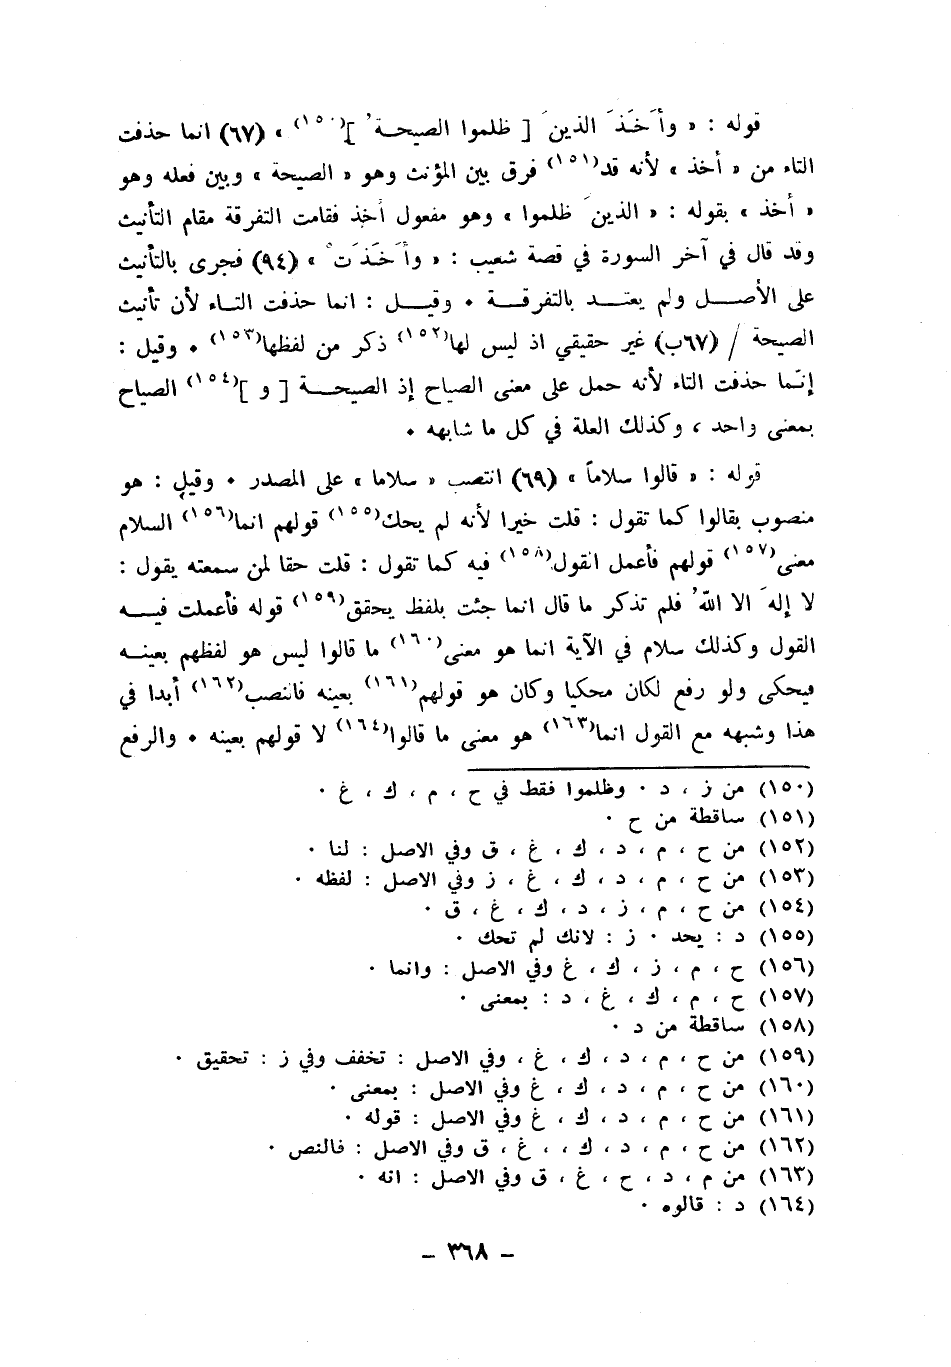 قوله : « وأَخَذَ الذينَ [ ظلموا الصيحةُ ](١٥٠) » (٦٧) انما حذفت
التاء من « أخذ » لأنه قد(١٥١) فرق بين المؤنث وهو « الصيحة » وبين فعله وهو
« أخذ » بقوله : « الذينَ ظلموا » وهو مفعول أخذ فقامت التفرقة مقام التأنيث
وقد قال في آخر السورة في قصة شعيب : « وأَخَذَتْ » (٩٤) فجرى بالتأنيث
على الأصـــل ولم يعتـــد بالتفرقـــة ٠ وقيـــل : انما حذفت التـاء لأن تأنيث
الصيحة / (٦٧ب) غير حقيقي اذ ليس لها(١٥٢) ذكر من لفظها(١٥٣) ٠ وقيل :
إنّما حذفت التاء لأنه حمل على معنى الصياح إذ الصيحـــة [ و ](١٥٤) الصياح
بمعنى واحد ، وكذلك العلة في كل ما شابهه ٠
قوله : « قالوا سلاماً » (٦٩) انتصب « سلاما » على المصدر ٠ وقيل : هو
منصوب بقالوا كما تقول : قلت خيرا لأنه لم يحك(١٥٥) قولهم انما(١٥٦) السلام
معنى(١٥٧) قولهم فأعمل القول(١٥٨) فيه كما تقول : قلت حقا لمن سمعته يقول :
لا إلهَ الا اللهُ فلم تذكر ما قال انما جئت بلفظ يحقق(١٥٩) قوله فأعملت فيـــه
القول وكذلك سلام في الآية انما هو معنى(١٦٠) ما قالوا ليس هو لفظهم بعينـــه
فيحكى ولو رفع لكان محكيا وكان هو قولهم(١٦١) بعينه فانتصب(١٦٢) أبدا في
هذا وشبهه مع القول انما(١٦٣) هو معنى ما قالوا(١٦٤) لا قولهم بعينه ٠ والرفع
(١٥٠) من ز ، د ٠ وظلموا فقط في ح ، م ، ك ، غ ٠
(١٥١) ساقطة من ح ٠
(١٥٢) من ح ، م ، د ، ك ، غ ، ق وفي الاصل : لنا ٠
(١٥٣) من ح ، م ، د ، ك ، غ ، ز وفي الاصل : لفظه ٠
(١٥٤) من ح ، م ، ز ، د ، ك ، غ ، ق ٠
(١٥٥) د : يحد ٠ ز : لانك لم تحك ٠
(١٥٦) ح ، م ، ز ، ك ، غ وفي الاصل : وانما ٠
(١٥٧) ح ، م ، ك ، غ ، د : بمعنى ٠
(١٥٨) ساقطة من د ٠
(١٥٩) من ح ، م ، د ، ك ، غ ، وفي الاصل : تخفف وفي ز : تحقيق ٠
(١٦٠) من ح ، م ، د ، ك ، غ وفي الاصل : بمعنى ٠
(١٦١) من ح ، م ، د ، ك ، غ وفي الاصل : قوله ٠
(١٦٢) من ح ، م ، د ، ك ، ، غ ، ق وفي الاصل : فالنص ٠
(١٦٣) من م ، د ، ح ، غ ، ق وفي الاصل : انه ٠
(١٦٤) د : قالوه ٠
– ٣٦٨ –